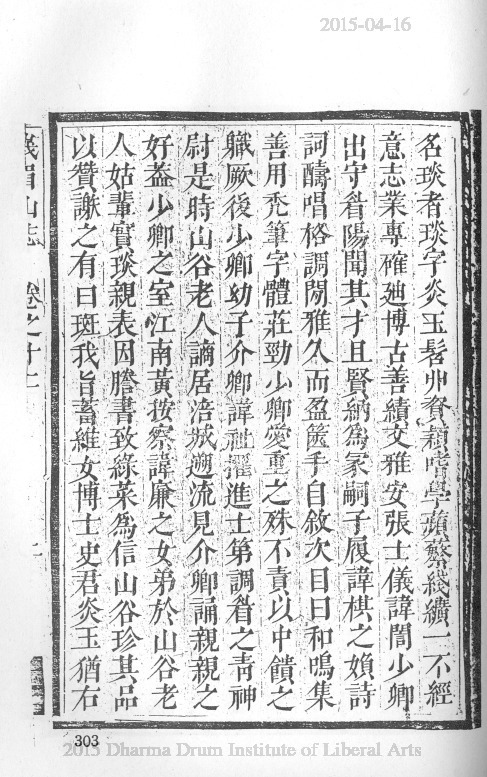 2015-04-16
名琰者琰字炎玉髫丱資穎嗜學蘋蘩綫纊一不經
意志業專確廸博古善績文雅安張士儀諱誾少卿
出守眷陽聞其才且賢納爲冢嗣子履諱棋之媍詩
詞疇唱格調閒雅久而盈篋手自敘次目曰和鳴集
善用禿筆字體莊勁少卿愛重之殊不責以中饋之
職厥後少卿幼子介卿諱祉擢進士第調眷之青神
尉是時山谷老人謫居涪城遡流見介卿誦親親之
好葢少卿之室江南黃按察諱廉之女弟於山谷老
人姑輩實琰親表因謄書致綠菜爲信山谷珍其品
以贊謝之有曰斑我旨蓄維女博士史君炎玉猶右
峩眉山志 卷之十二
303
2015 Dharma Drum Institute of Liberal Arts